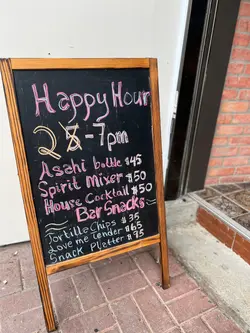 Happy Hour
2-7pm
Asahi bottle $45
Spirit Mixer $50
House Cocktail $50
Bar Snacks
Tortille Chips $35
Love me Tender $65
Snack Pletter $75